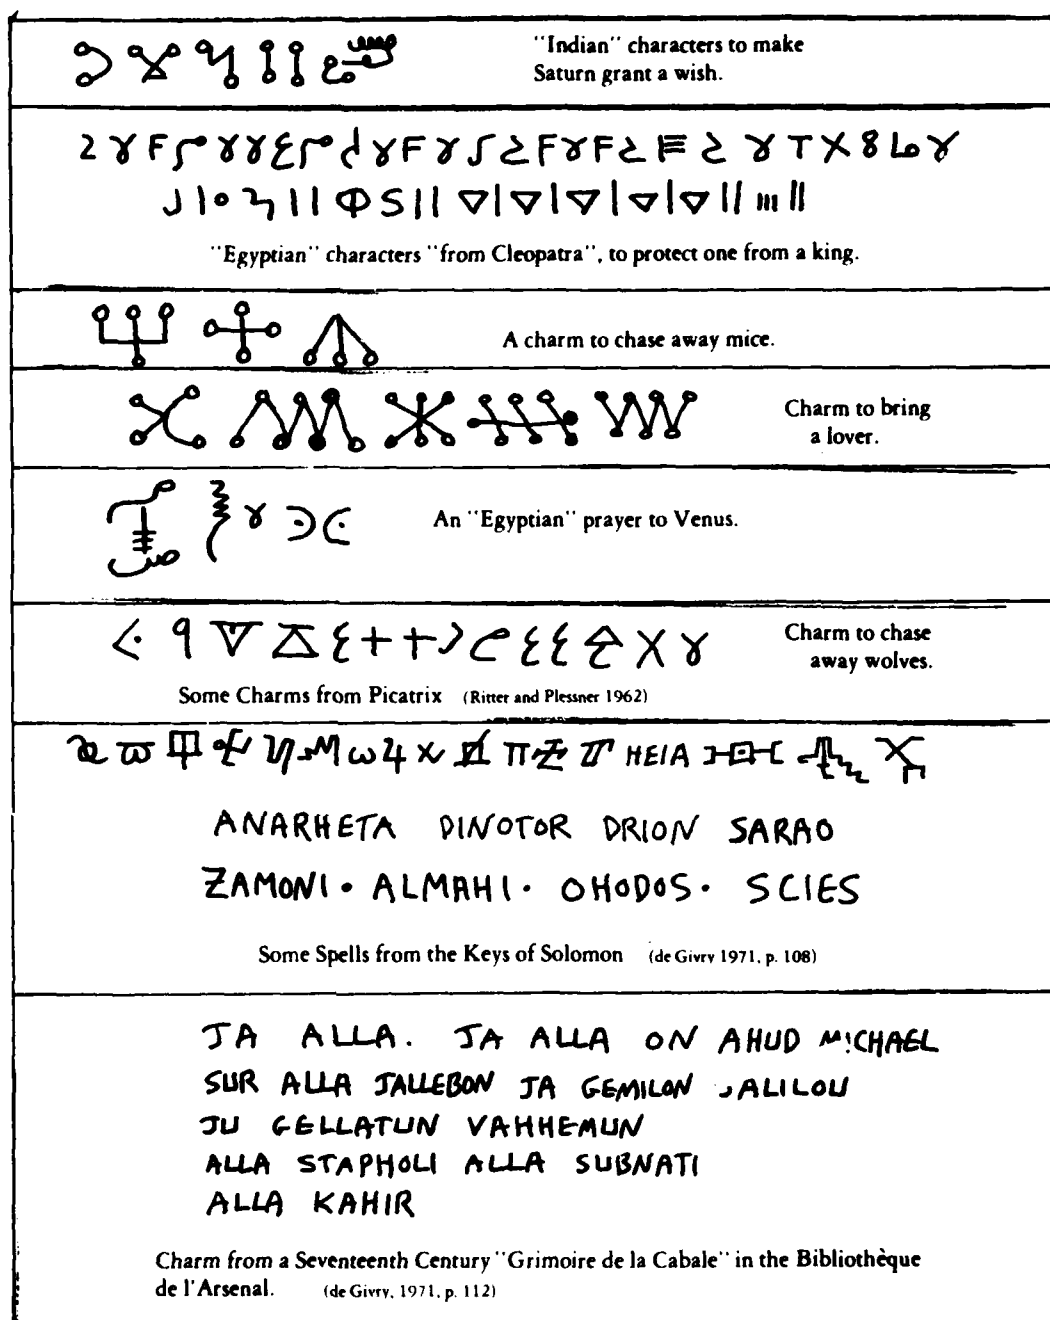 "Indian" characters to make
Saturn grant a wish.
"Egyptian" characters "from Cleopatra", to protect one from a king.
A charm to chase away mice.
Charm to bring
a lover.
An "Egyptian" prayer to Venus.
Charm to chase
away wolves.
Some Charms from Picatrix (Ritter and Plessner 1962)
HEIA
ANARHETA DINOTOR DRION SARAO
ZAMONI · ALMAHI · OHODOS · SCIES
Some Spells from the Keys of Solomon (de Givry 1971, p. 108)
JA ALLA. JA ALLA ON AHUD MICHAEL
SUR ALLA JALLEBON JA GEMILON JALILOU
JU GELLATUN VAHHEMUN
ALLA STAPHOLI ALLA SUBNATI
ALLA KAHIR
Charm from a Seventeenth Century "Grimoire de la Cabale" in the Bibliothèque
de l'Arsenal. (de Givry, 1971, p. 112)